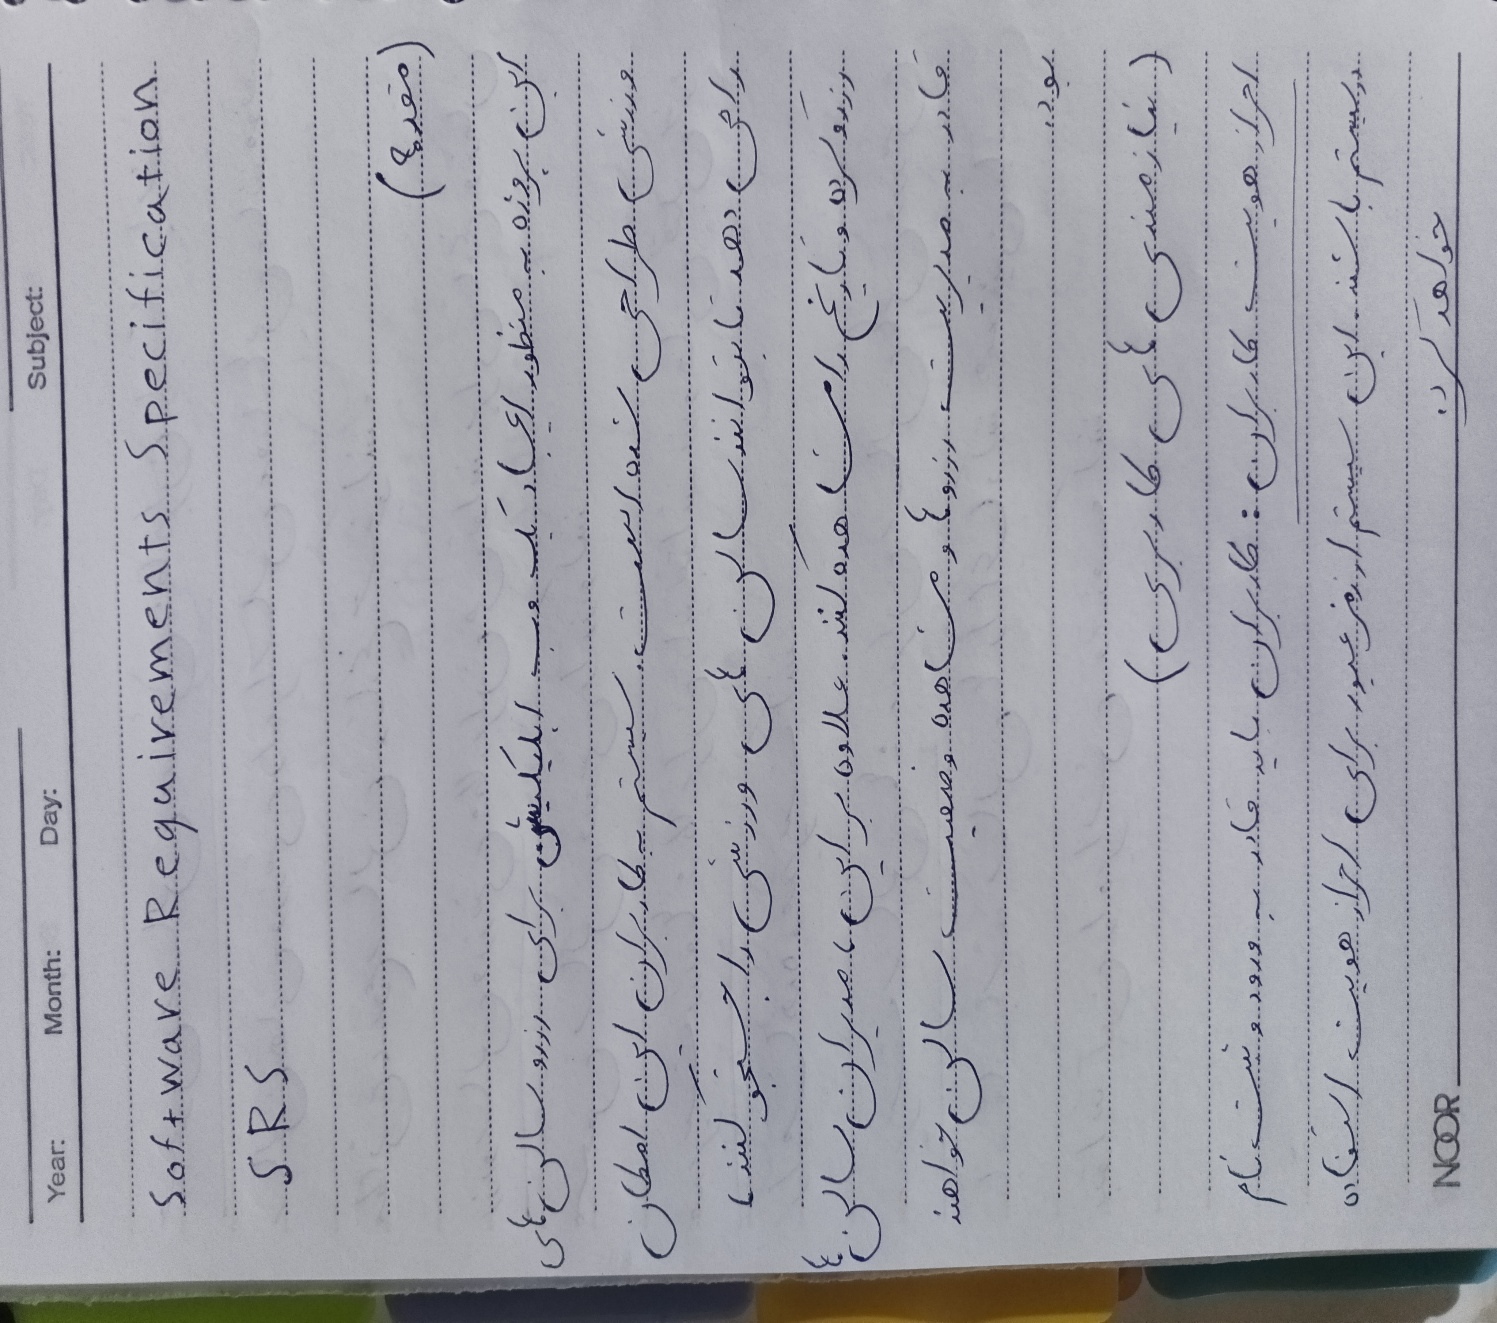 Year: Month: Day: Subject:
Software Requirements Specification
SRS
(مقدمه)
این پروژه به منظور ایجاد یک وب اپلیکیشن برای رزرو سالن های
ورزشی طراحی شده است. سیستم به کاربران این امکان
را می دهد تا بتوانند سالن های ورزشی را جستجو کنند یا
رزرو کرده و نتایج را مشاهده کنند. علاوه بر این ما مدیران سالن ها
قادر به مدیریت رزرو ها و مشاهده وضعیت سالن خواهند
بود.
(نیازمندی های کاربری)
احراز هویت کاربران: کاربران باید قادر به ورود و ثبت نام
در سیستم باشند. این سیستم از رمز عبور برای احراز هویت استفاده
خواهد کرد.
NOOR